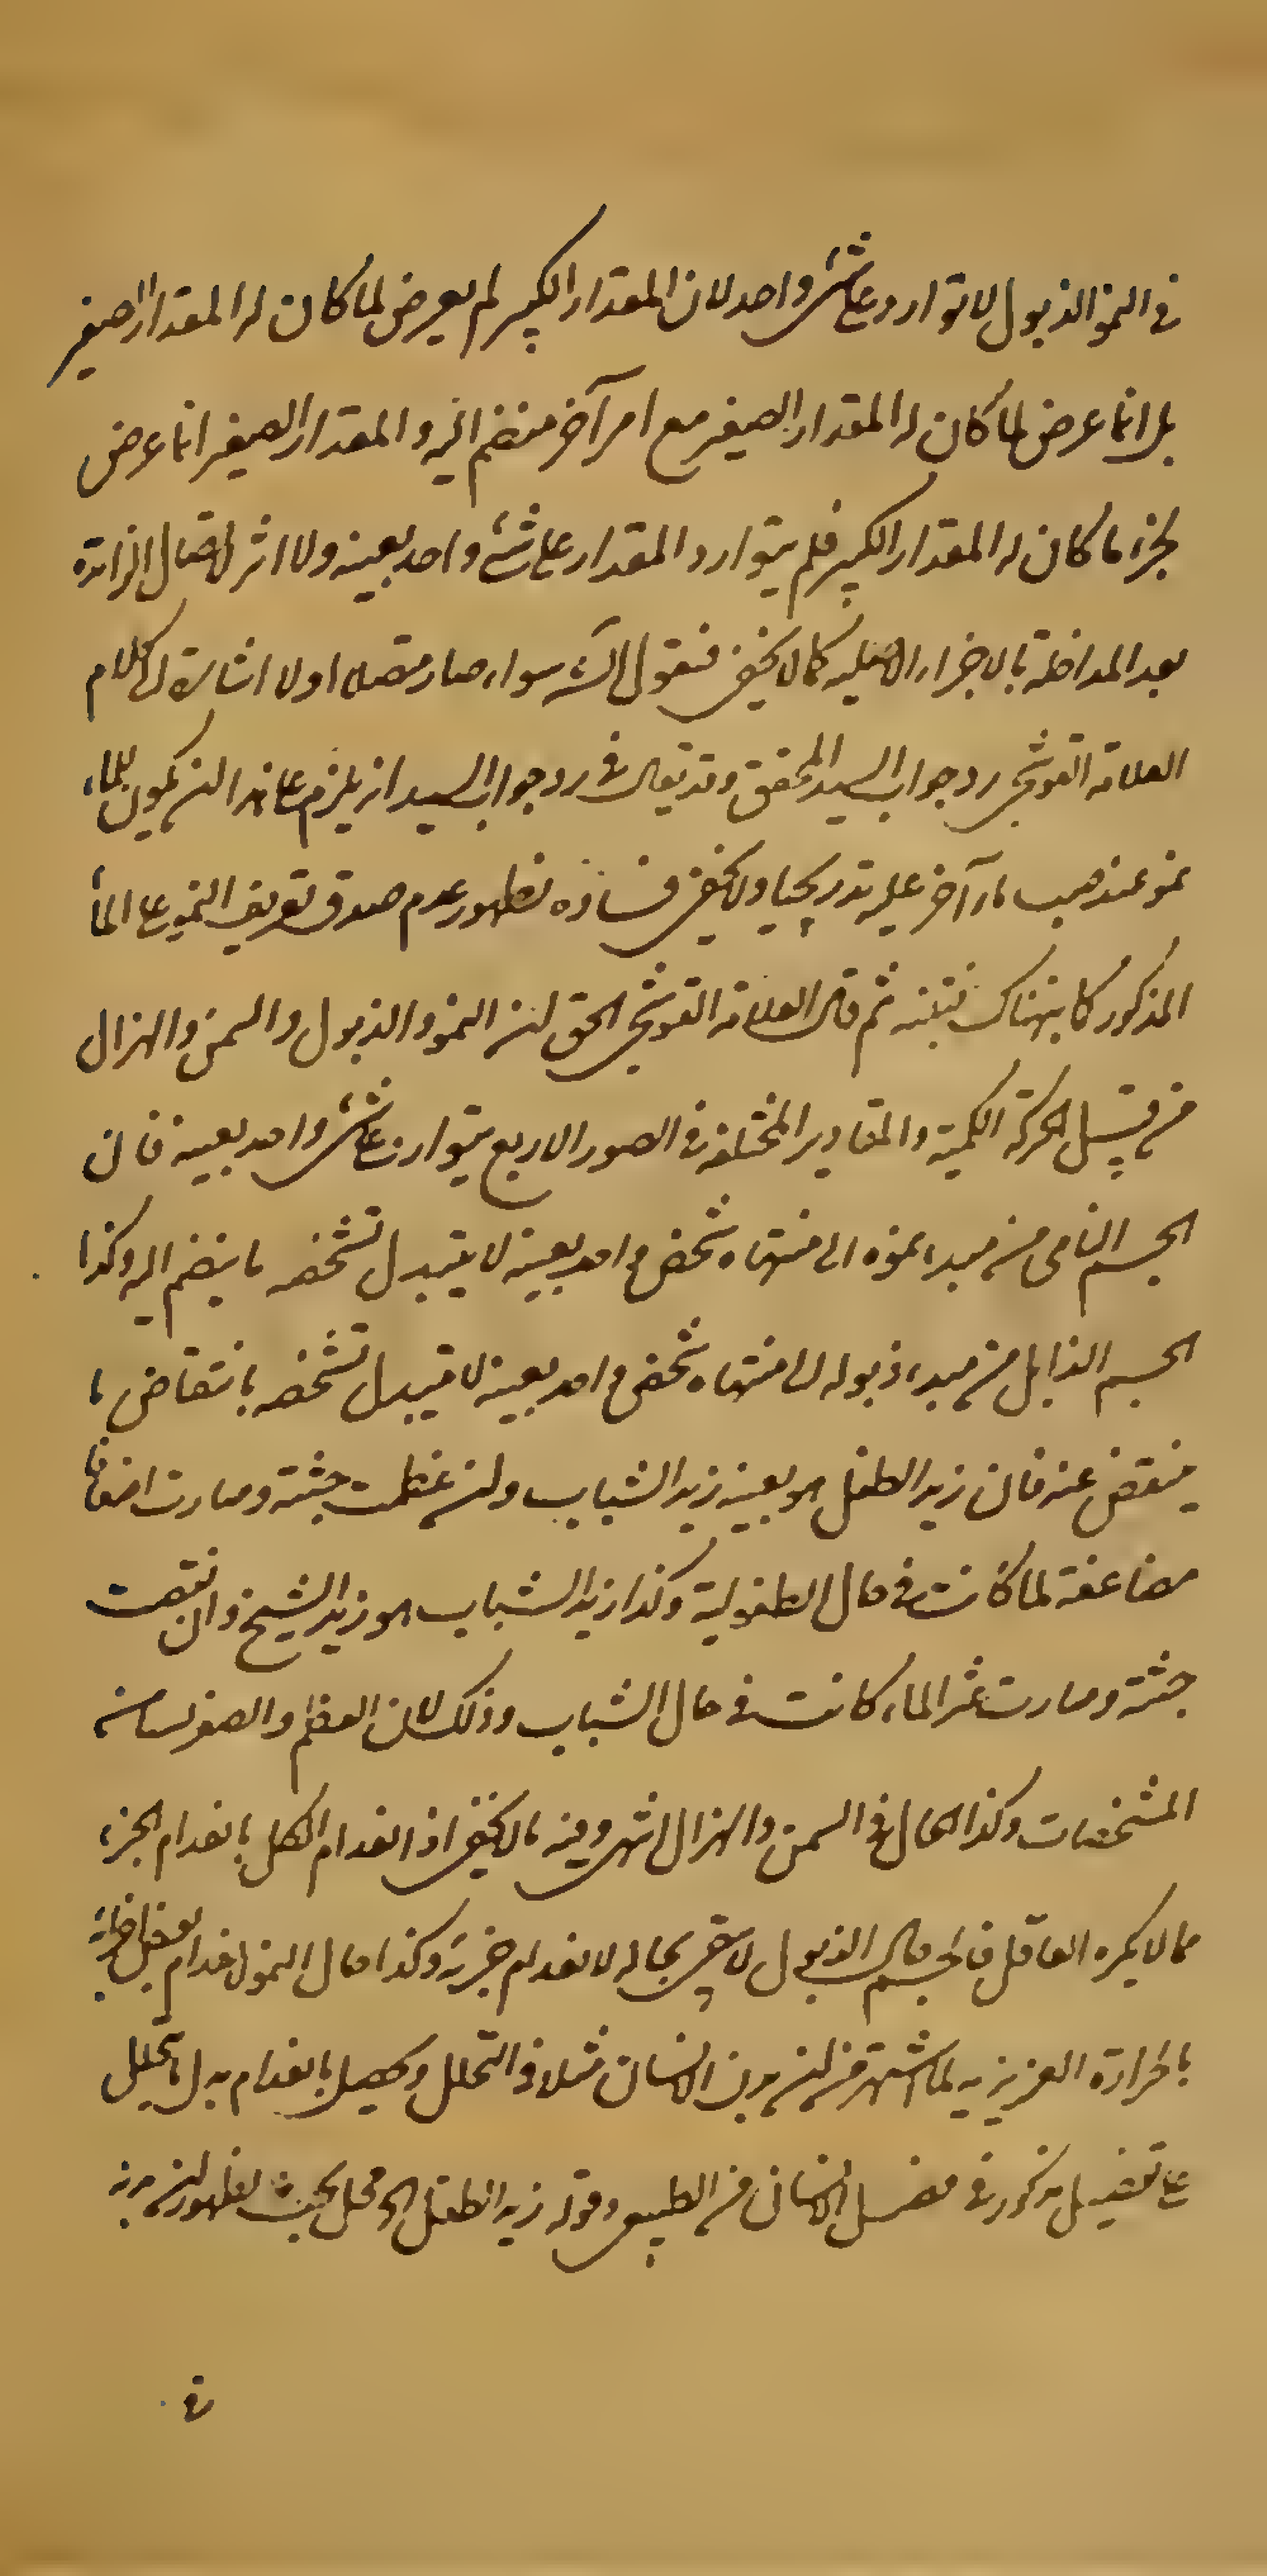 في النمو الذبول لا توارد علی شئ واحد لان المقدار الكبير لم يعرض لما كان له المقدار الصغير
بل انما عرض لما كان له المقدار الصغير مع امر آخر منضم اليه والمقدار الصغير انما عرض
لجزء ما كان له المقدار الكبير فلم يتوارد المقدار علی شئ واحد بعينه ولا اثر لاتصال الزائدة
بعد المداخلة بالاجزاء الاصلية كما لا يخفى فنقول الشئ سواء صار متصلا اولا اشارة الى كلام
العلامة القوشجي رد جواب السيد المحقق وقد يقال في رد جواب السيد انه يلزم على هذا ان يكون للماء
نمو عند صب ماء آخر عليه تدريجيا ولا يخفى فساده لظهور عدم صدق تعريف النمو على الماء
المذكور كما نبهناك ثم قال العلامة القوشجي الحق ان النمو والذبول والسمن والهزال
من قبيل الحركة الكمية والمقادير المختلفة في الصور الاربع يتوارد على شئ واحد بعينه فان
الجسم النامي من مبدء نموه الى منتهاه شخص واحد بعينه لا يتبدل تشخصه ما ينضم اليه وكذا
الجسم الذابل من مبدء ذبوله الى منتهاه شخص واحد بعينه لا يتبدل تشخصه بانتقاض ما
ينتقض عنه فان زيد الطفل هو بعينه زيد الشباب وان عظمت جثته وصارت اضعافا
مضاعفة لما كانت في حال الطفولية وكذا زيد الشباب هو زيد الشيخ وان نقصت
جثته وصارت عشر الماء كانت في حال الشباب وذلك لان العظم والصغر ليسا من
المشخصات وكذا الحال في السمن والهزال انتهى وفيه ما لا يخفى اذ انعدام الكل بانعدام الجزء
مما لا ينكره العاقل فالجسم حال الذبول لا يبقى بحاله لانعدام جزئه وكذا حال النمو لانعدام بعض اجزائه
بالحرارة الغريزيه لما اشتهر من ان بدن الانسان مثلا في التحلل ويحصل بانعدام بدل ما يتحلل
على تفصيل مذكور في فصل الانسان من الطبيعي وقوله زيد الطفل الخ محل بحث لظهور ان بدنه
في